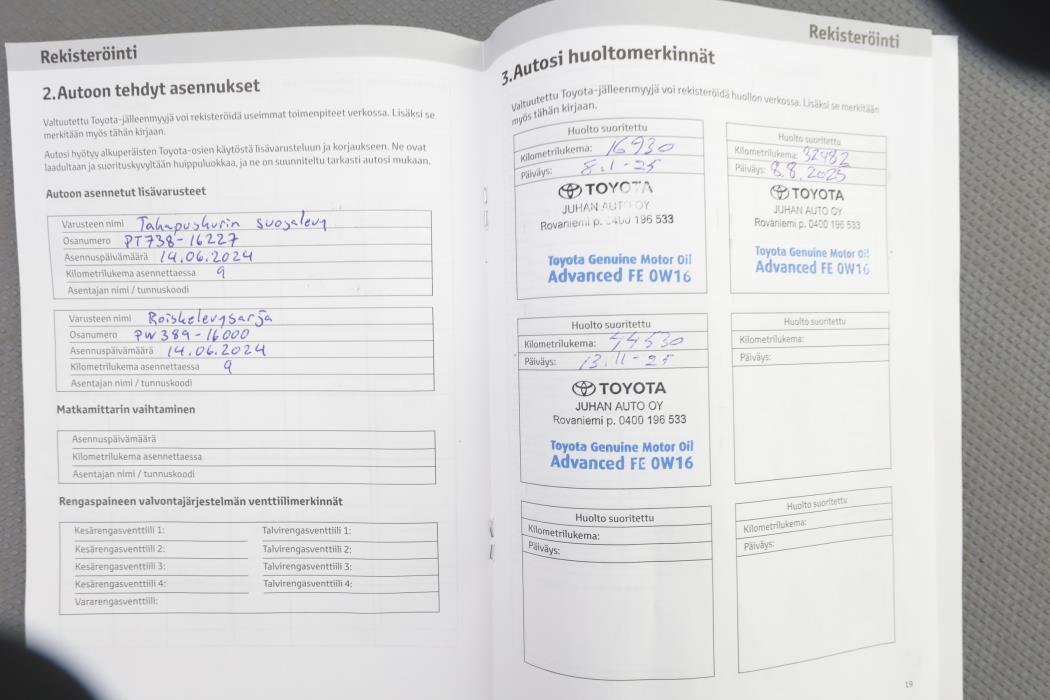 Rekisteröinti
2.Autoon tehdyt asennukset
Valtuutettu Toyota-jälleenmyyjä voi rekisteröidä useimmat toimenpiteet verkossa. Lisäksi se
merkitään myös tähän kirjaan.
Autosi hyötyy alkuperäisten Toyota-osien käytöstä lisävarusteluun ja korjaukseen. Ne ovat
laadultaan ja suorituskyvyltään huippuluokkaa, ja ne on suunniteltu tarkasti autosi mukaan.
Autoon asennetut lisävarusteet
Varusteen nimi Takapuskurin suojalevy
Osanumero PT738-16227
Asennuspäivämäärä 14.06.2024
Kilometrilukema asennettaessa 9
Asentajan nimi / tunnuskoodi
Varusteen nimi Roiskelevysarja
Osanumero PW389-16000
Asennuspäivämäärä 14.06.2024
Kilometrilukema asennettaessa 9
Asentajan nimi / tunnuskoodi
Matkamittarin vaihtaminen
Asennuspäivämäärä
Kilometrilukema asennettaessa
Asentajan nimi / tunnuskoodi
Rengaspaineen valvontajärjestelmän venttiilimerkinnät
Kesärengasventtiili 1: Talvirengasventtiili 1:
Kesärengasventtiili 2: Talvirengasventtiili 2:
Kesärengasventtiili 3: Talvirengasventtiili 3:
Kesärengasventtiili 4: Talvirengasventtiili 4:
Vararengasventtiili:
Rekisteröinti
3.Autosi huoltomerkinnät
Valtuutettu Toyota-jälleenmyyjä voi rekisteröidä huollon verkossa. Lisäksi se merkitään
myös tähän kirjaan.
Huolto suoritettu
Kilometrilukema: 16930
Päiväys: 8.1-25
TOYOTA
JUHAN AUTO OY
Rovaniemi p. 0400 196 533
Toyota Genuine Motor Oil
Advanced FE 0W16
Huolto suoritettu
Kilometrilukema: 32482
Päiväys: 8.8.2025
TOYOTA
JUHAN AUTO OY
Rovaniemi p. 0400 196 533
Toyota Genuine Motor Oil
Advanced FE 0W16
Huolto suoritettu
Kilometrilukema: 44530
Päiväys: 13.11-25
TOYOTA
JUHAN AUTO OY
Rovaniemi p. 0400 196 533
Toyota Genuine Motor Oil
Advanced FE 0W16
Huolto suoritettu
Kilometrilukema:
Päiväys:
Huolto suoritettu
Kilometrilukema:
Päiväys:
Huolto suoritettu
Kilometrilukema:
Päiväys:
19